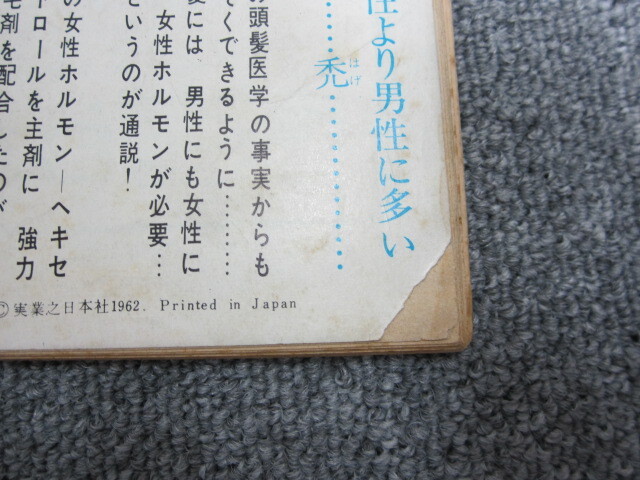 性より男性に多い
……禿…………
はげ
頭髪医学の事実からも
てくできるように………
には 男性にも女性に
女性ホルモンが必要…
というのが通説！
の女性ホルモン―ヘキセ
トロールを主剤に 強力
毛剤を配合したのが
©実業之日本社1962. Printed in Japan